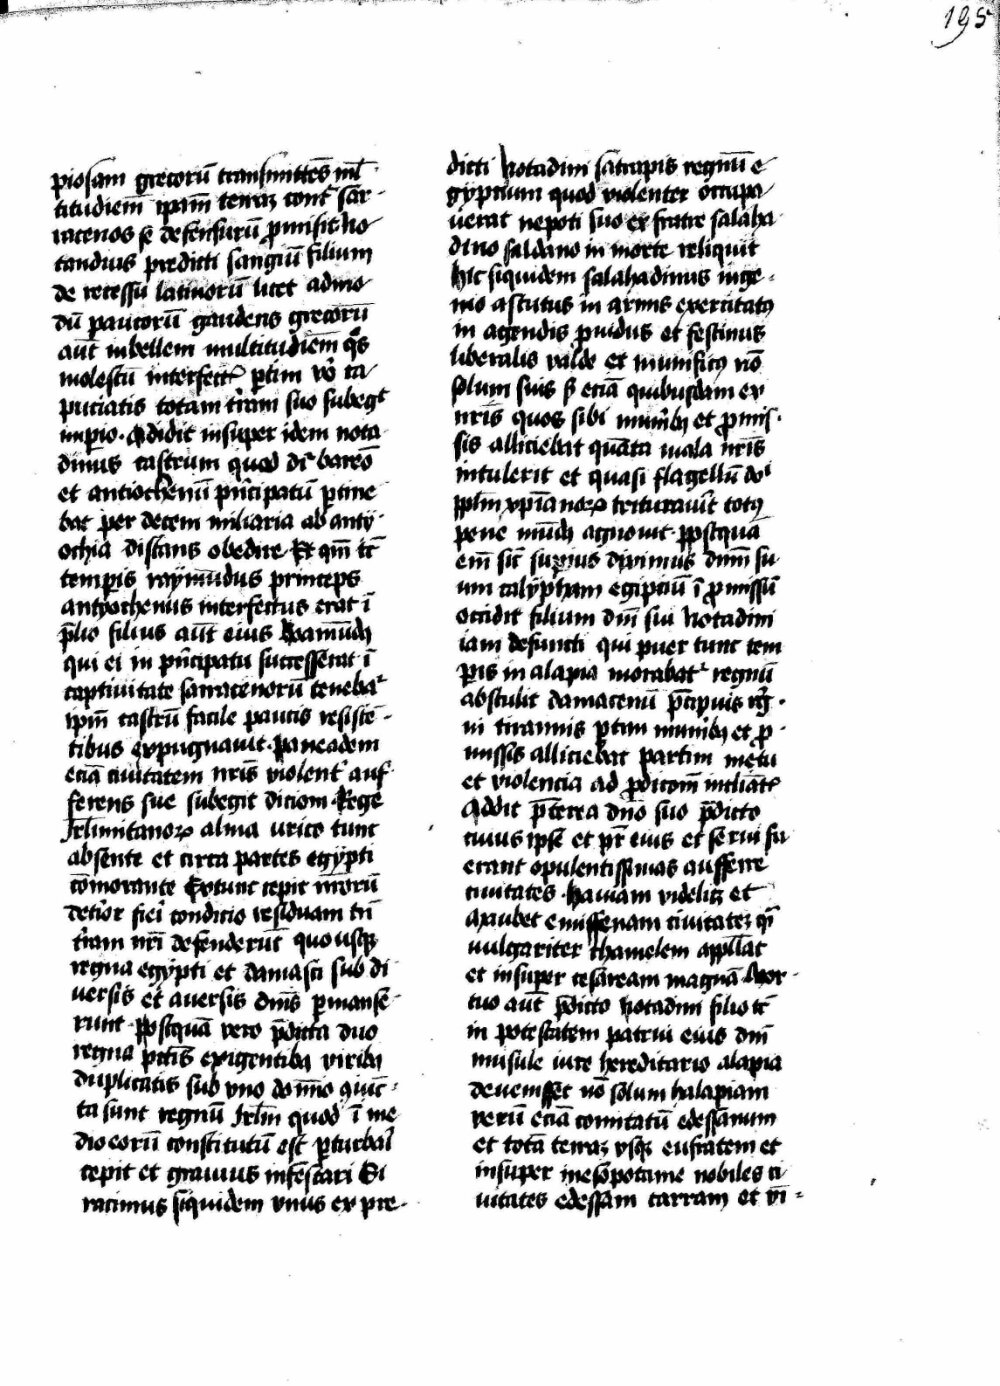 195
piosam grecorū transmittēs ml̄
titudiem̄ ipam̄ terraȝ cont̄ sar-
racenos se defensurū ꝓmisit ho
tandius predicti sangiū filium
de recessu latinorū licet admo
dū paucorū gaudens grecorū
aūt inbellem multitudiem̄ q̄s
molestū interfect ꝑtim v̊o ca
puciatis totam t̄ram suo subegt
imꝑio. Addidit insuper idem nota
dinus castrum quod dr̄ bareō
et antiochenū pn̄cipatū ꝑtine
bat per decem miliaria ab anty
ochia distans obedire Et qm̄ tc̄
temꝑis raymūdus princeps
antyochenus interfectus erat ī
p̄lio filius aūt eius boamūdꝫ
qui ei in pn̄cipatu successerat ī
captiuitate sarracenorū tenebat
ipm̄ castrū facile paucis resistē-
tibus expugnauit. paneadem
eciā ciuitatem nr̄is violent̄ auf-
ferens sue subegit dicioni. Rege
Jrl̄imitanoꝝ alma urico tunc
absente et circa partes egypti
cōmorante Extunc cepit miorū
det̄ior fieri condicio residuam tn̄
t̄ram nr̄i defenderūt quousqꝫ
regna egypti et damasci sub di
uersis et auersis dn̄is ꝑmanse-
runt. Postquā vero p̄dicta duo
regna pctīs exigentibꝫ viribꝫ
duplicatis sub vno domīo iūc-
ta sunt regnū Jrl̄m quod ī me
dio eorū constitutū est ꝑturbari
cepit et grauius infestari Si
racimus siquidem vnus ex pre-
dicti hotadini satrapis regnū e
gyptium quod violenter occupa-
uerat nepoti suo ex fratre salaha
dino saldano in morte reliquit
hic siquidem salahadinus inge-
nio astutus in armis exercitatꝰ
in agendis ꝓuidus et festinus
liberalis valde et munificꝰ nō
solum suis sꝫ eciā quibusdam ex
nr̄is quos sibi mun̄ibꝫ et ꝓmis-
sis alliciebat quāta mala nr̄is
intulerit et quasi flagellū dei
ppl̄m xp̄ianoꝝ triturauīt totꝰ
pene mūdꝫ agnouit. postquā
em̄ sic̄ suꝑius diximus dnm̄ su
um calypham egiptiū ī ꝓmissū
occidit filium dnī sui hotadini
iam defuncti qui puer tunc tem
ꝑis in alapia morabat regnū
abstulit damacenū p̄cipuis reg-
ni tirannis ꝑtim mun̄ibꝫ et ꝓ-
missis alliciebat partim metu
et violencia ad ꝓdicom̄ inclinatꝭ
Addit p̄terea dn̄o suo p̄dicto
cuius ipse et pr̄ eius et serui fu
erant opulentissimas aufferre
ciuitates. hamam videlicꝫ et
axaubet emissenam ciuitateȝ q̄
vulgariter chamelem appll̄at
et insuper cesaream magnā Mor-
tuo aūt p̄dicto hotadini filio tc̄
in potestatem patrui eius dnī
musule iure hereditario alapia
deuenisset nō solum halapiam
verū eciā comitatū edessanum
et totā terraȝ vsqꝫ eufratem et
insuper mesopotame nobiles ci
uitates edessam carram et vi=